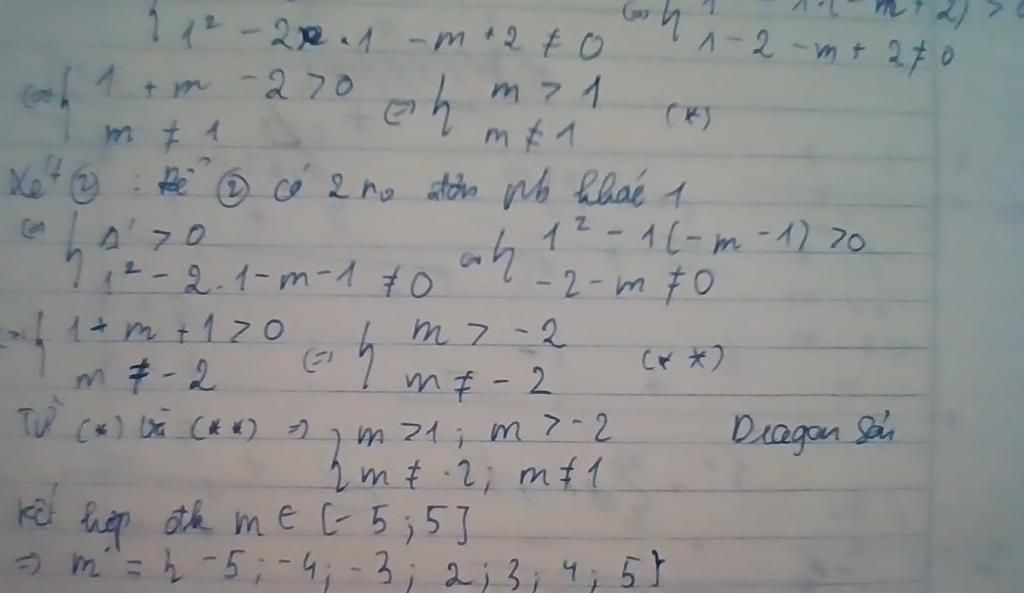 { 1² - 2.1 - m + 2 ≠ 0 ⇔ { 1 - 1.(-m+2) > 0
1 - 2 - m + 2 ≠ 0
⇔ { 1 + m - 2 > 0 ⇔ { m > 1
m ≠ 1 m ≠ 1 (*)
Xét ② : Để ② có 2 no đơn pb khác 1
⇔ { Δ' > 0 ⇔ { 1² - 1(-m - 1) > 0
1² - 2.1 - m - 1 ≠ 0 -2 - m ≠ 0
⇔ { 1 + m + 1 > 0 ⇔ { m > -2
m ≠ -2 m ≠ -2 (**)
Từ (*) và (**) ⇒ { m > 1 ; m > -2 Dragon Sần
m ≠ -2 ; m ≠ 1
Kết hợp đk m ∈ [-5 ; 5]
⇒ m = { -5 ; -4 ; -3 ; 2 ; 3 ; 4 ; 5 }